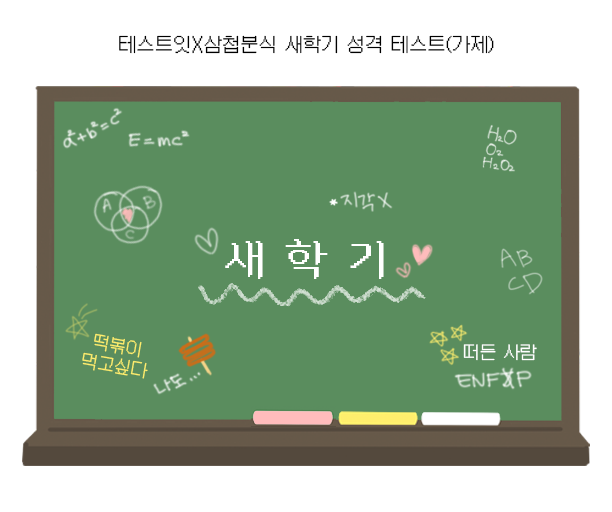 테스트잇X삼첩분식 새학기 성격 테스트(가제)
a²+b²=c²
E=mc²
H₂O
O₂
H₂O₂
A B
C
*지각X
새학기
AB
CD
떡볶이
먹고싶다
나도...
떠든 사람
ENFP